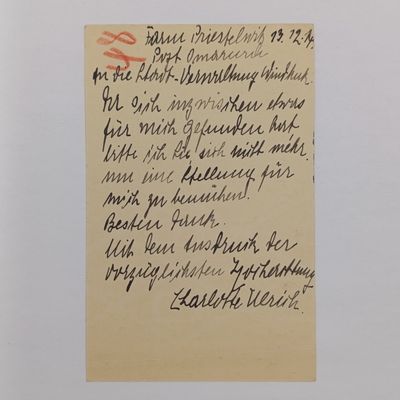 48
Farm Priestelwitz 13.12.
Post Omaruru
An die Stadt-Verwaltung Windhuk.
Da sich inzwischen etwas
für mich gefunden hat
bitte ich Sie sich nicht mehr
um eine Stellung für
mich zu bemühen.
Besten Dank.
Mit dem Ausdruck der
vorzüglichsten Hochachtung
Charlotte Ulrich.